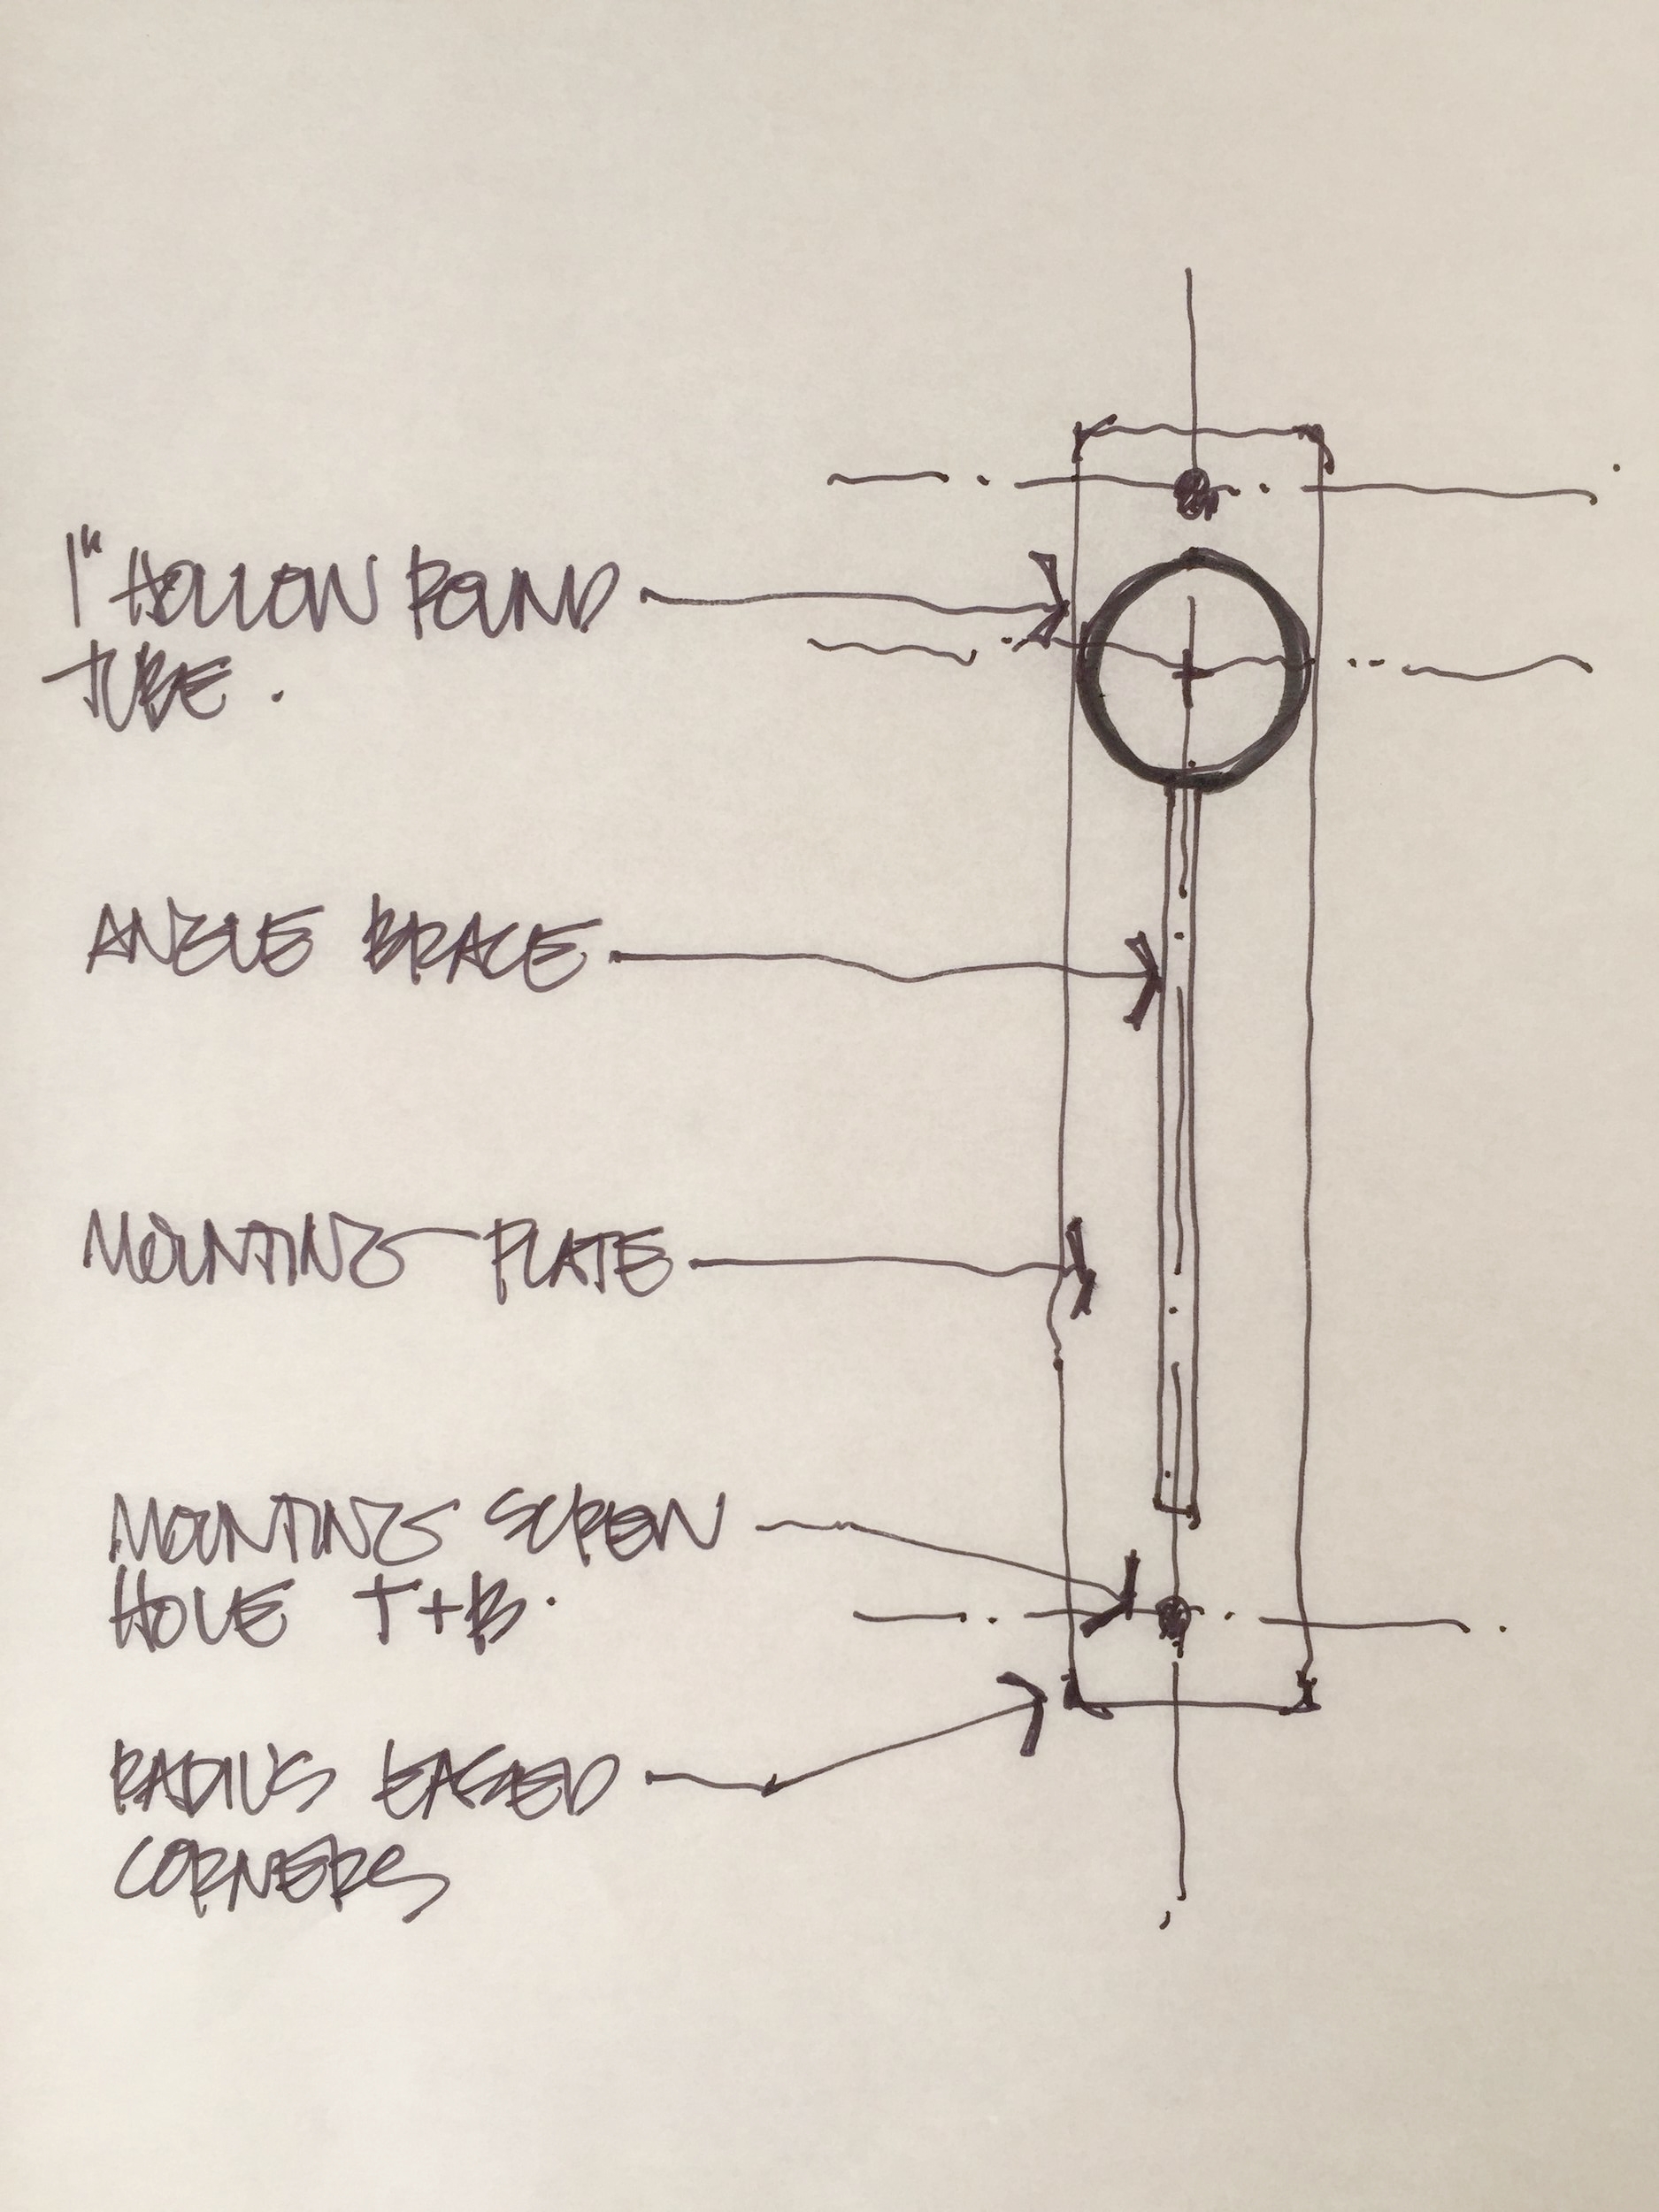 1" HOLLOW ROUND
TUBE.
ANGLE BRACE
MOUNTING PLATE
MOUNTING SCREW
HOLE T+B.
RADIUS EASED
CORNERS